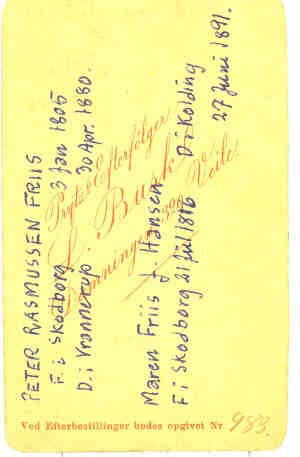 PETER RASMUSSEN FRIIS
F. i Skodborg 3 Jan 1805
D. i Vranderup 30 Apr. 1880.
Maren Friis f. Hansen
F i Skodborg 21 Jul 1816 D i Kolding
27 Juni 1891.
Prytz's Efterfølger
L. Buch
Dæmningen
Veile.
Ved Efterbestillinger bedes opgivet Nr. 983.